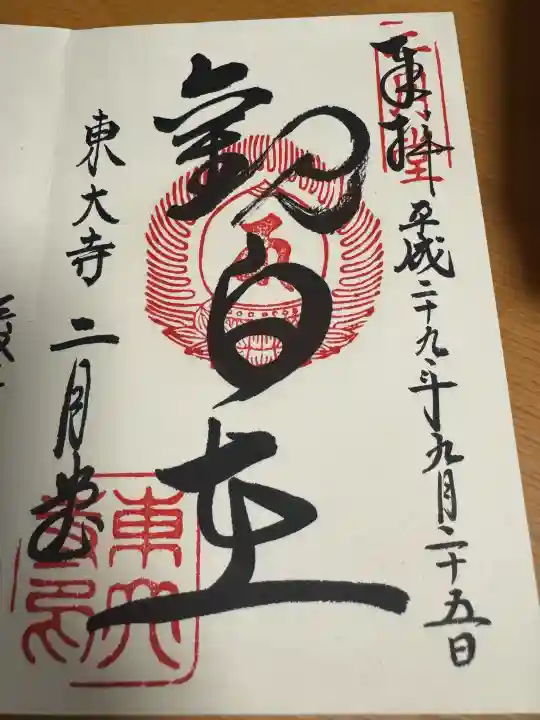 奉拝 平成二十九年九月二十五日
観自在
東大寺 二月堂
二月堂